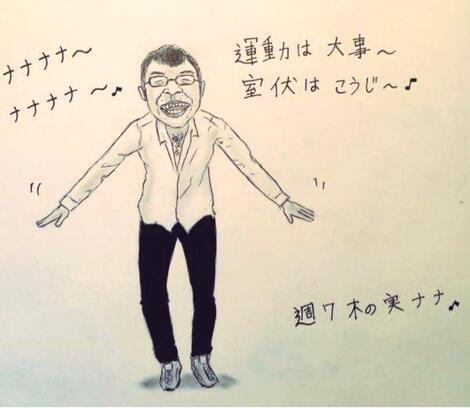 ナナナナ～
ナナナナ～♪
運動は大事～
室伏はこうじ～♪
週7木の実ナナ♪